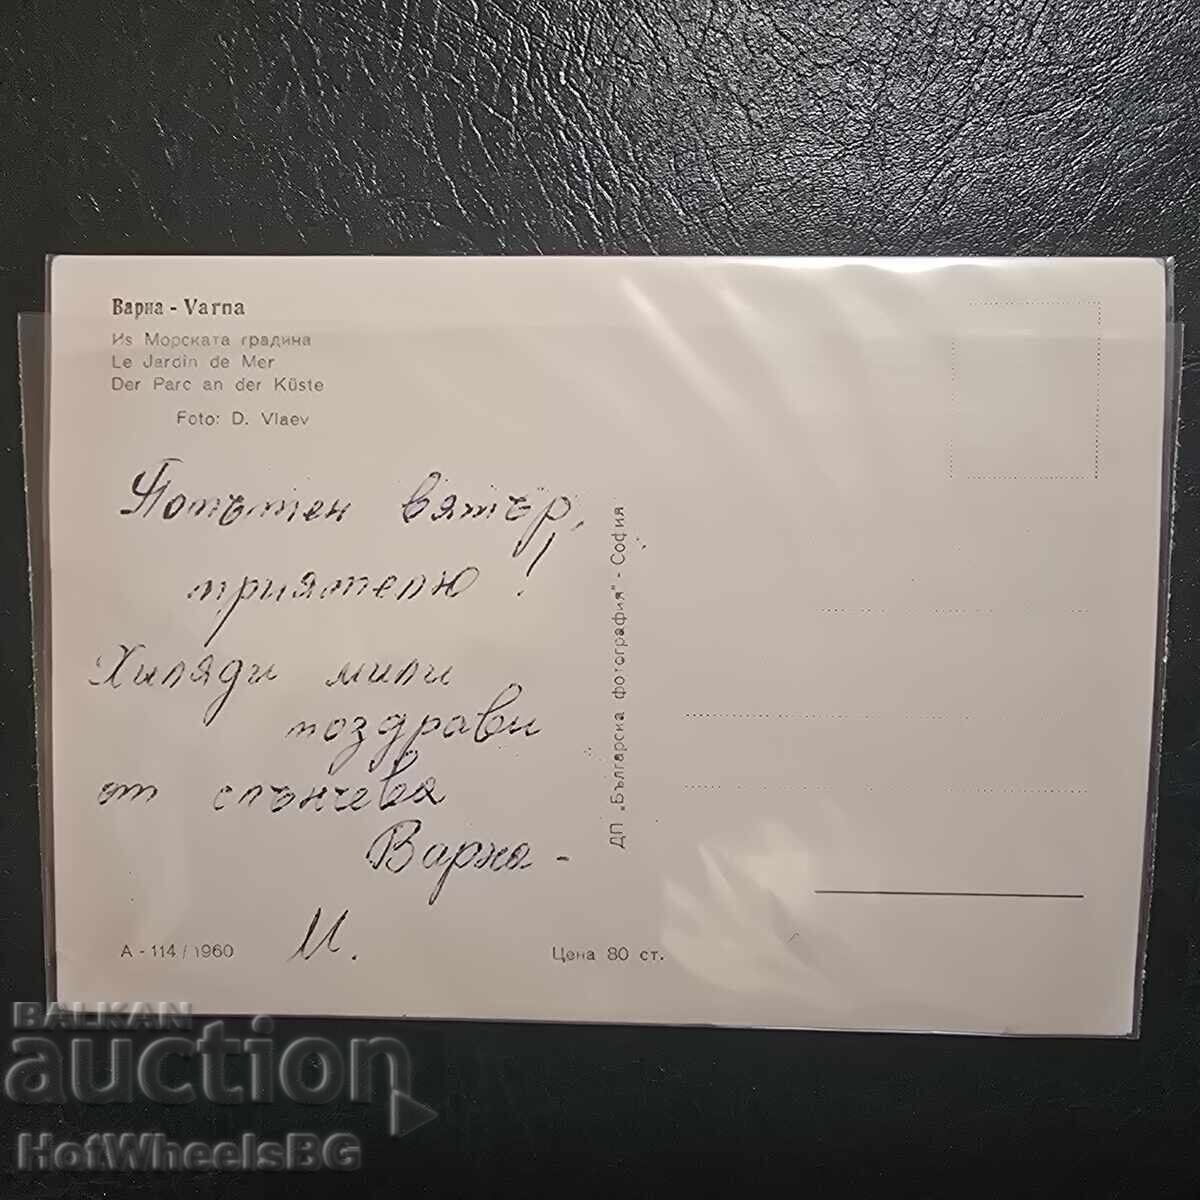 Варна - Varna
Из Морската градина
Le Jardin de Mer
Der Parc an der Küste
Foto: D. Vlaev
Попътен вятър,
приятелю!
Хиляди мили
поздрави
от слънчева
Варна -
М.
А - 114 / 1960
Цена 80 ст.
ДП „Българска фотография" - София
BALKAN
auction
HotWheelsBG